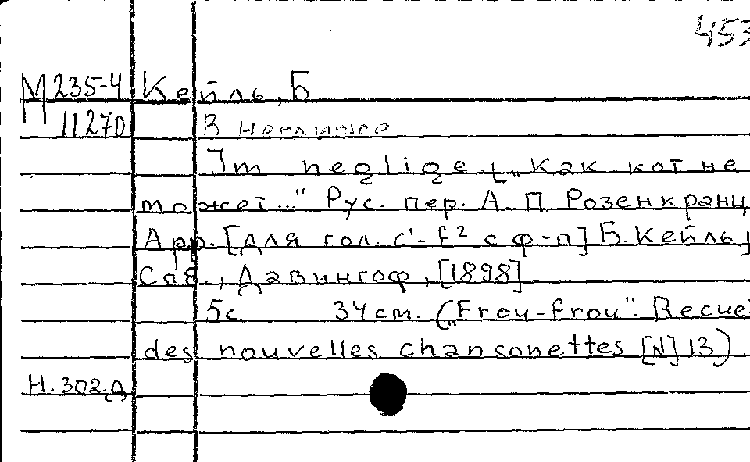 453
М 235-4 Кейль, Б
11270 В неглиже
Im neglige [„Как кот не
может..." Рус. пер. А. П. Розенкранц
Арр. [для гол. c'-f² с ф-п] Б. Кейль]
Спб., Давингоф, [1898]
5с 34 cm. („Frou-frou". Recue
des nouvelles chansonettes [N] 13)
Н. 302.д